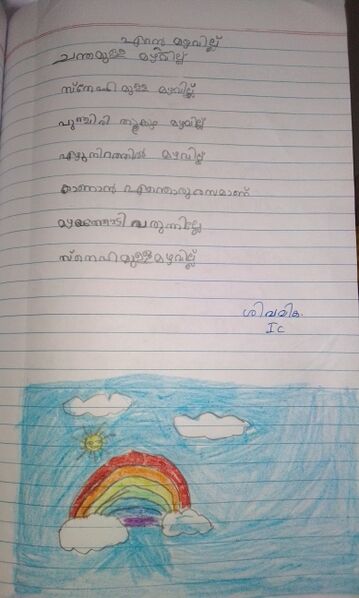 എന്റെ മഴവില്ല്
ചന്തമുള്ള മഴവില്ല്
സ്നേഹമുള്ള മഴവില്ല്
പുഞ്ചിരി തൂകും മഴവില്ല്
ഏഴുനിറത്തിൽ മഴവില്ല്
കാണാൻ എന്തൊരു രസമാണ്
വരുന്നില്ലേ
സ്നേഹമുള്ള മഴവില്ല്
ശിവമിക
I C